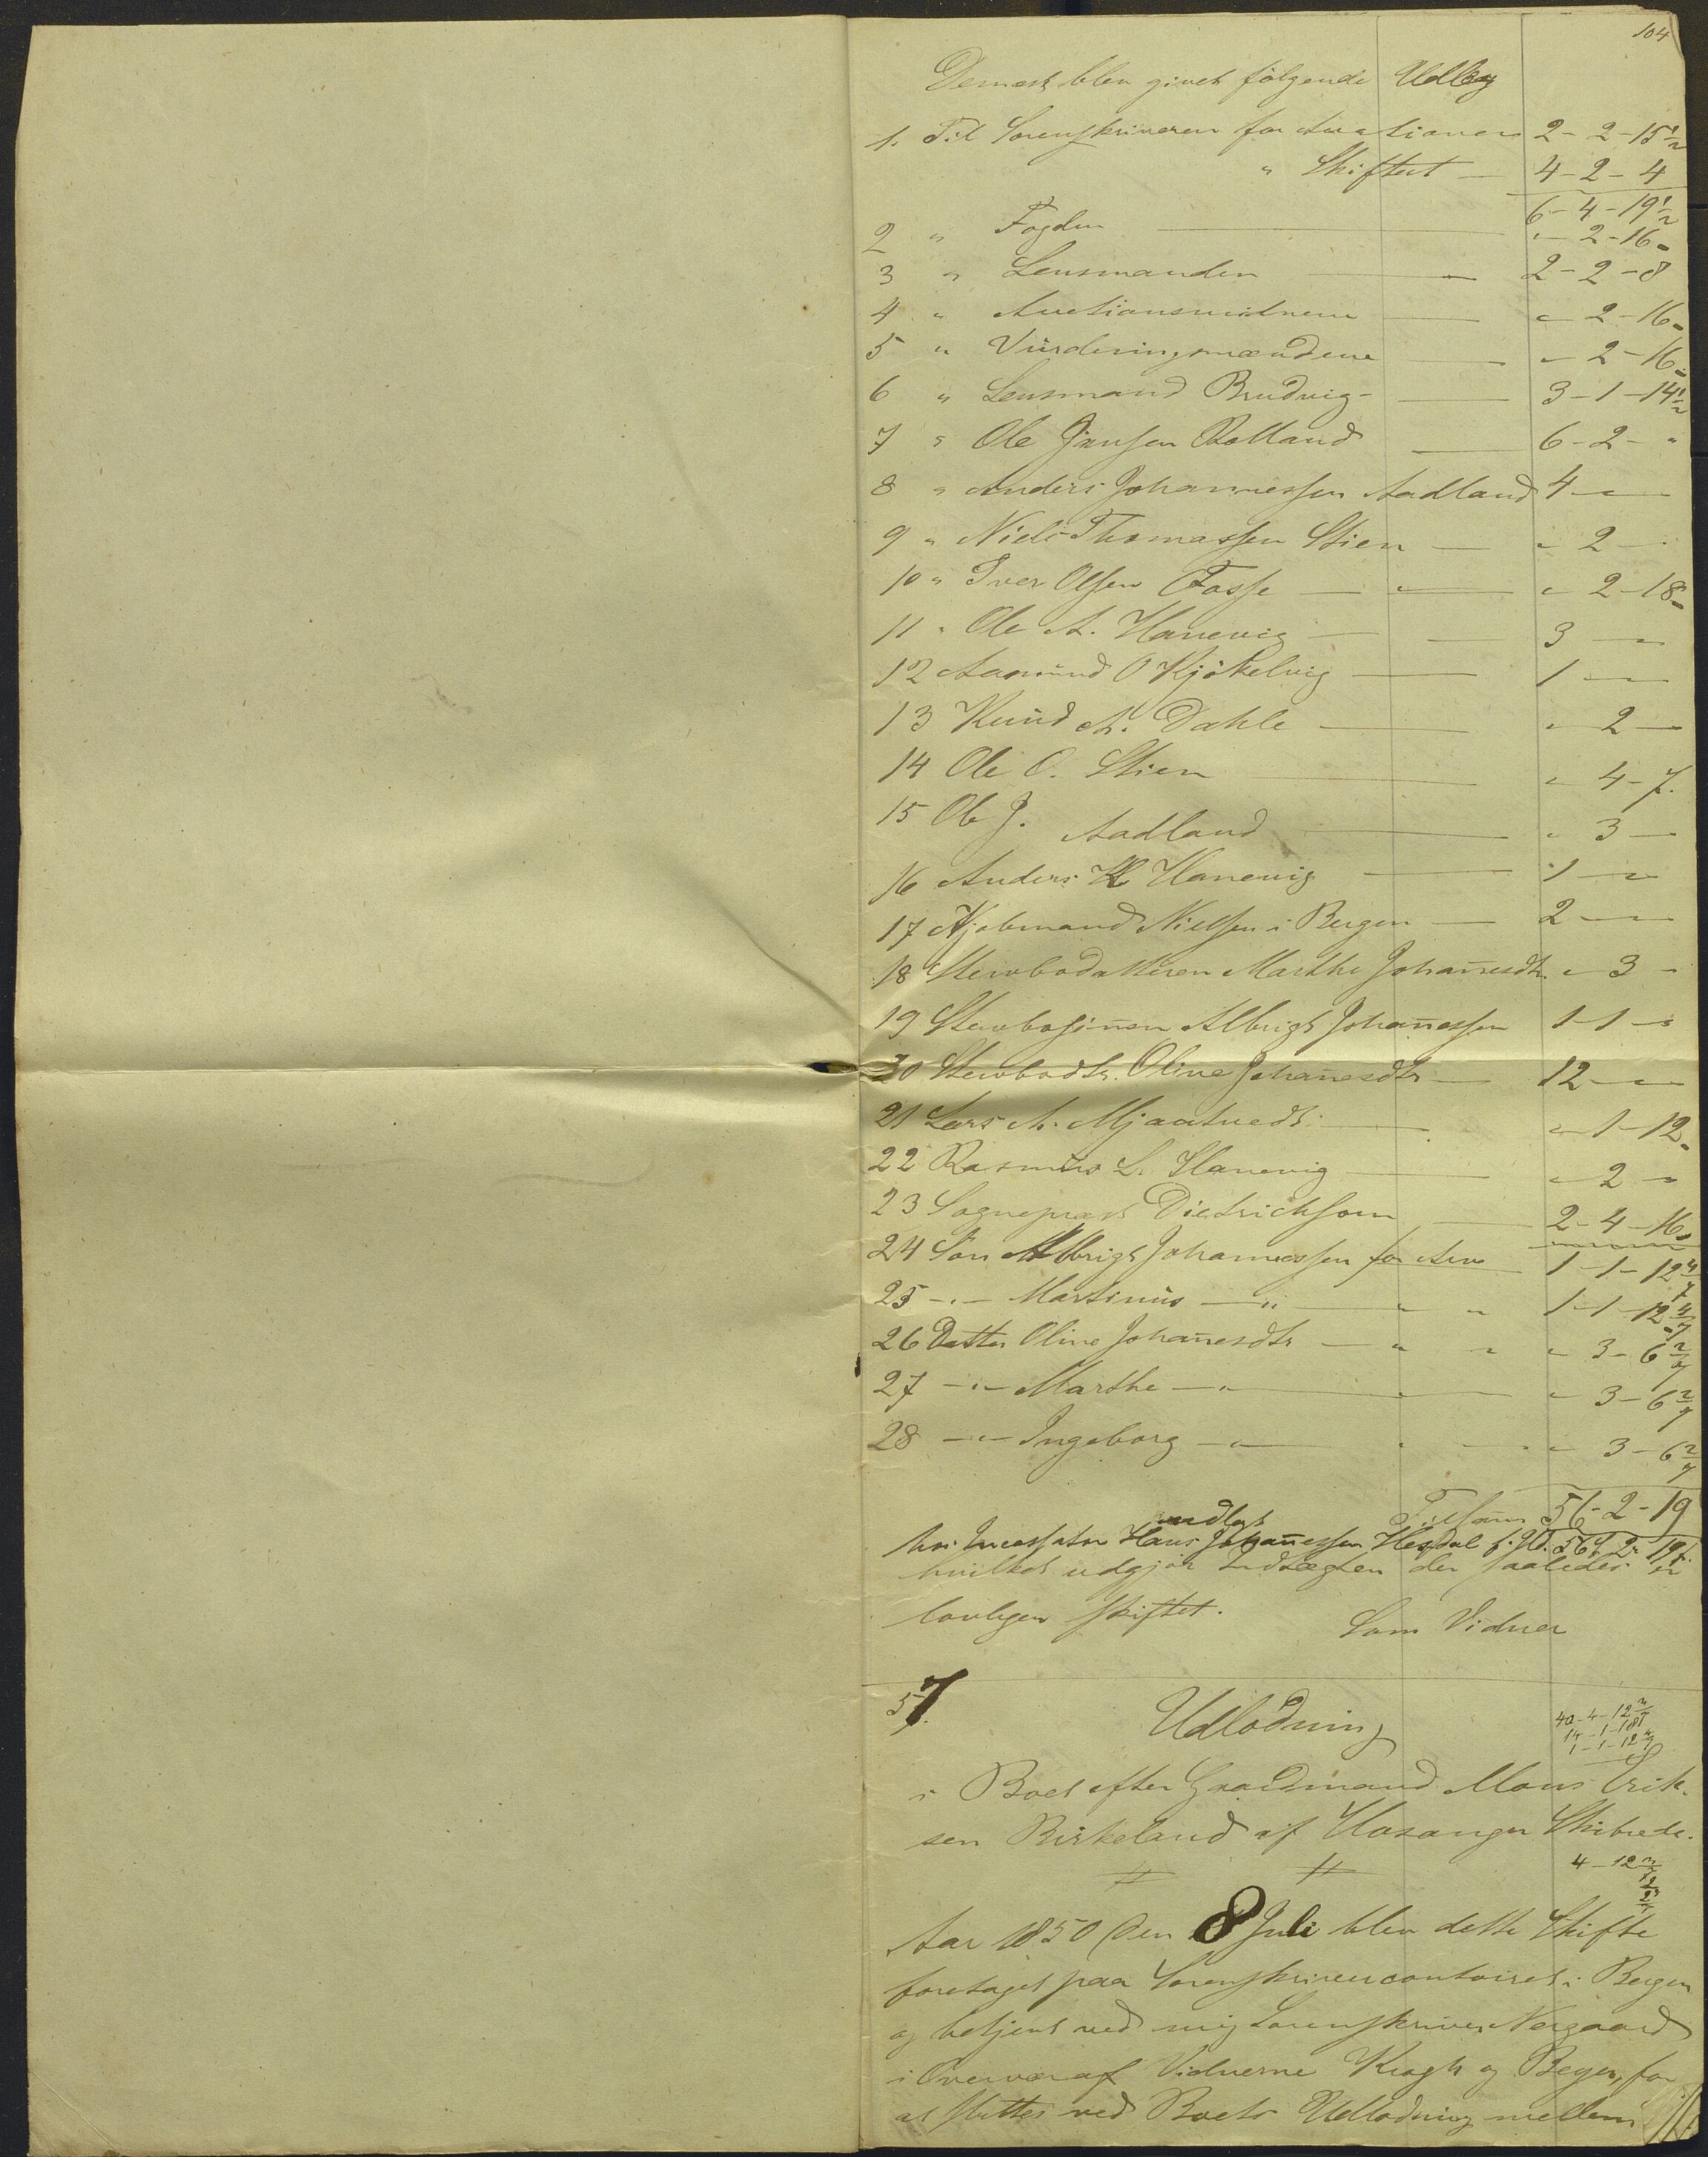 104
Dernæst blev givet følgende Udlæg
1. Til Sorenskriveren for Auctionen 2-2-15½
" Skiftet — 4-2-4
6-4-19½
2 " Fogden — "-2-16-
3 " Lensmanden — 2-2-8
4 " Auctionsvidnerne — "-2-16-
5 " Vürderingsmændene — "-2-16-
6 " Lensmand Brudvig — 3-1-14½
7 " Ole Jansen Rolland — 6-2-"
8 " Anders Johannessen Aadland 4-"-
9 " Niels Thomassen Stien — " 2 -
10 " Iver Olsen Fosse — " 2-18-
11 " Ole A. Hanevig — 3 -
12 Aamund O Kjökelvig — 1 -"-
13 Knud A. Dahle — "-2-
14 Ole O. Stien — "-4-7.
15 Ole J. Aadland — " 3 -
16 Anders K Hanevig — 1 -"
17 Kjøbmand Nielsen i Bergen — 2 -"-
18 Stervbodatteren Marthe Johañesdtr. " 3 -
19 Stervbosönnen Albrigt Johañessen 1-1-"
20 Stervbodtr. Oline Johañesdtr — 12-"-
21 Lars A. Mjaatvedt — "-1-12-
22 Rasmus L. Hanevig — "-2-"
23 Sognepræst Dietrichson — 2-4-16-
24 Sön Albrigt Johannessen for Arv 1-1-12 4/7
25 -"- Martinus -"- " " 1-1-12 4/7
26 Datter Oline Johañesdtr — " " "-3-6 2/7
27 -"- Marthe -"- "-3-6 2/7
28 -"- Ingeborg -"- "-3-6 2/7
Tilsam̃ 56-2-19
udlagt
hos Incassator Hans Johañessen Hesdal 56 2 19
hvilket udgjør Indtægten der saaledes er
lovligen skiftet.
Som Vidner
57.
Udlodning
40-4-12
14-1-18
1-1-12 4/7
i Boet efter Gaardmand Mons Erik-
sen Birkeland af Hosanger Skibrede.
4-12
Aar 1850 den 8 Juli blev dette Skifte
foretaget paa Sorenskrivercontoiret i Bergen
og betjent ved mig Sorenskriver Nergaard
i Overvær af Vidnerne Krogh og Beyer, for
at sluttes ved Boets Udlodning mellem